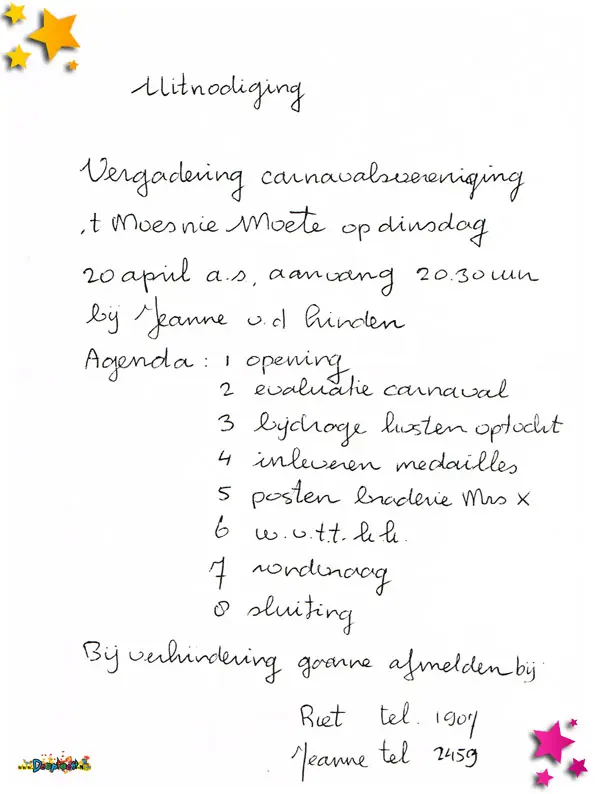 Uitnodiging
Vergadering carnavalsvereniging
't Moes nie Moete op dinsdag
20 april a.s, aanvang 20.30 uur
bij Jeanne v.d Linden
Agenda: 1 opening
2 evaluatie carnaval
3 bijdrage kosten optocht
4 inleveren medailles
5 posten braderie Mrs X
6 w.v.t.t.k.
7 rondvraag
8 sluiting
Bij verhindering gaarne afmelden bij
Riet tel. 1907
Jeanne tel 2459